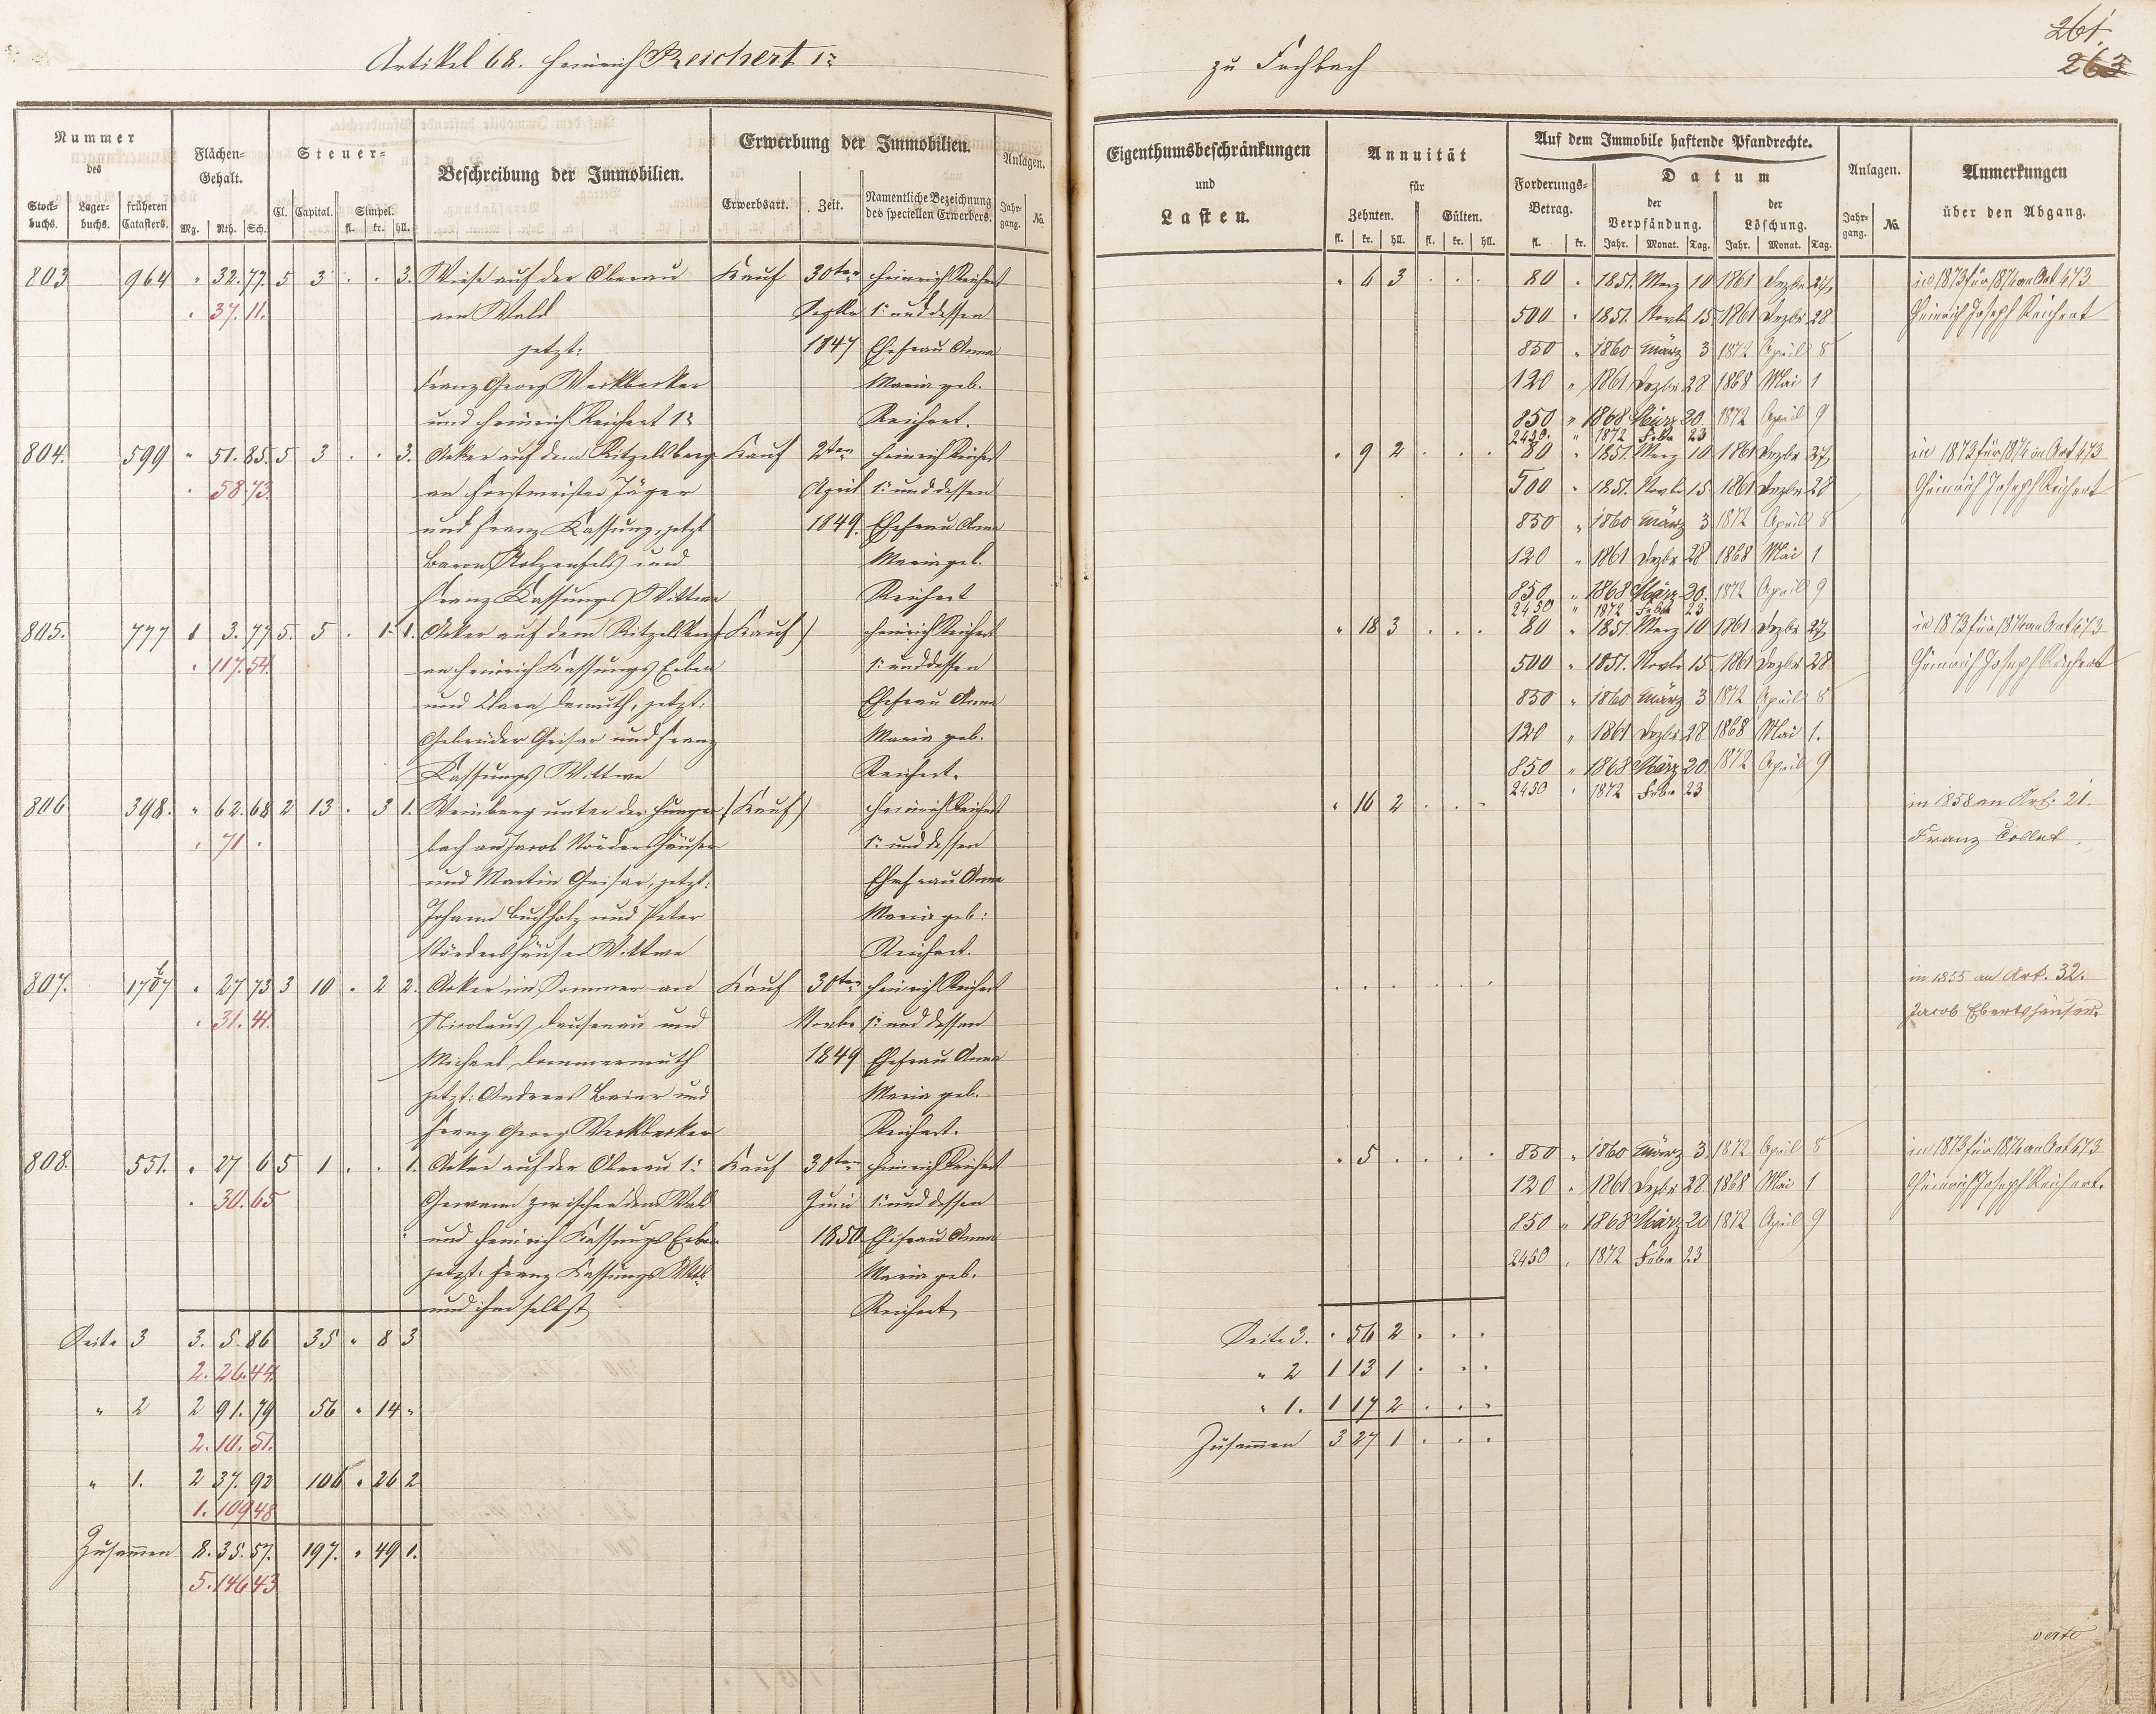 Artikel 68. Heinrich Reichert 1r
zu Fachbach
261.
263
Nummer des
Stockbuchs. Lagerbuchs. früheren Catasters.
Flächen-Gehalt.
Mg. Rth. Sch.
Steuer-
Cl. Capital. Simpel.
fl. kr. hll.
Beschreibung der Immobilien.
Erwerbung der Immobilien.
Erwerbsart. Zeit. Namentliche Bezeichnung des speciellen Erwerbers.
Anlagen.
Jahrgang. No.
Eigenthumsbeschränkungen
und
Lasten.
Annuität
für
Zehnten. Gülten.
fl. kr. hll. fl. kr. hll.
Auf dem Immobile haftende Pfandrechte.
Forderungs-Betrag.
fl. kr.
Datum
der Verpfändung. der Löschung.
Jahr. Monat. Tag. Jahr. Monat. Tag.
Anlagen.
Jahrgang. No.
Anmerkungen
über den Abgang.
803 964 " 32. 77. 5 3 . . 3. Wiese auf der Oberau Kauf 30ten Heinrich Reichert
. 37. 11. am Wald Septbr 1r und dessen
jetzt: 1847 Ehefrau Anna
Franz Georg Werkbecker Maria geb.
und Heinrich Reichert 1r Reichert.
" 6 3 . . . 80 " 1851. Merz 10 1861 Dezbr 27 in 1873 für 1874 an Art 473
500 " 1851. Novbr 15 1861 Dezbr 28 Heinrich Joseph Reichert
850 " 1860 März 3 1872 April 8
120 " 1861 Dezbr 28 1868 Mai 1
850 " 1868 März 20. 1872 April 9
2450. " 1872 Febr 23
804. 599 " 51. 85. 5 3 . . 3. Acker auf dem Ritzelsberg Kauf 2ten Heinrich Reichert
. 58. 73. an Forstmeister Jäger April 1r und dessen
und Franz Kassung, jetzt 1849. Ehefrau Anna
Baron Stolzenfels und Maria geb.
Franz Kassungs Wittwe Reichert
. 9 2 . . . 80 " 1851. Merz 10 1861 Dezbr 27 in 1873 für 1874 an Art 473
500 " 1851. Novbr 15 1861 Dezbr 28 Heinrich Joseph Reichert
850 " 1860 März 3 1872 April 8
120 " 1861 Dezbr 28 1868 Mai 1
850 " 1868 März 20. 1872 April 9
2450 " 1872 Febr 23
805. 777 1 3. 77 5. 5 . 1. 1. Acker auf dem Ritzelsberg (Kauf) Heinrich Reichert
. 117. 54. an Heinrich Kassungs Erben 1r und dessen
und Clara Demuth, jetzt: Ehefrau Anna
Gebrüder Grisar und Franz Maria geb.
Kassungs Wittwe Reichert.
" 18 3 . . . 80 " 1851. Merz 10 1861. Dezbr 27 in 1873 für 1874 an Art 473
500 " 1851. Novbr 15 1861 Dezbr 28 Heinrich Joseph Reichert
850 " 1860 März 3 1872 April 8
120 " 1861 Dezbr 28 1868 Mai 1.
850 " 1868 März 20. 1872 April 9
2450 " 1872 Febr 23
806 398. " 62. 68 2 13 . 3 1. Weinberg unter der Hunger- (Kauf) Heinrich Reichert
. 71 . bach an Jacob Vördershäuser 1r und dessen
und Martin Grisar, jetzt: Ehefrau Anna
Johann Buchholz und Peter Maria geb:
Vördershäuser Wittwe Reichert.
" 16 2 . . . in 1858 an Art. 21.
Franz Collet.
807. 1707 " 27 73 3 10 . 2 2. Acker im Sommer an Kauf 30ten Heinrich Reichert
. 31. 41. Nicolaus Dausenau und Novbr 1r und dessen
Michael Dommermuth 1849 Ehefrau Anna
jetzt: Andreas Beier und Maria geb.
Franz Georg Werkbecker Reichert.
. . . . . . in 1855 an Art. 32.
Jacob Ebertshäuser.
808. 551. " 27 6 5 1 . . 1. Acker auf der Oberau 1r Kauf 30ten Heinrich Reichert
. 30. 65 Gewann zwischen dem Wald Juni 1r und dessen
und Heinrich Kassungs Erben 1850 Ehefrau Anna
jetzt: Franz Kassungs Wtb Maria geb.
und ihm selbst Reichert
. 5 . . . . 850 " 1860 März 3. 1872 April 8 in 1873 für 1874 an Art 473
120 " 1861 Dezbr 28. 1868 Mai 1 Heinrich Joseph Reichert.
850 " 1868 März 20 1872 April 9
2450 " 1872 Febr 23
Seite 3 3. 5. 86 35 " 8 3
2. 26. 44.
" 2 2 91. 79 56 " 14 "
2. 10. 51.
" 1. 2 37. 92 106 " 26 2
1. 109 48
Zusammen 8. 35. 57. 197. " 49 1.
5. 146 43
Seite 3. . 56 2 . . .
" 2 1 13 1 . . .
" 1. 1 17 2 . . .
Zusammen 3 27 1 . . .
verte